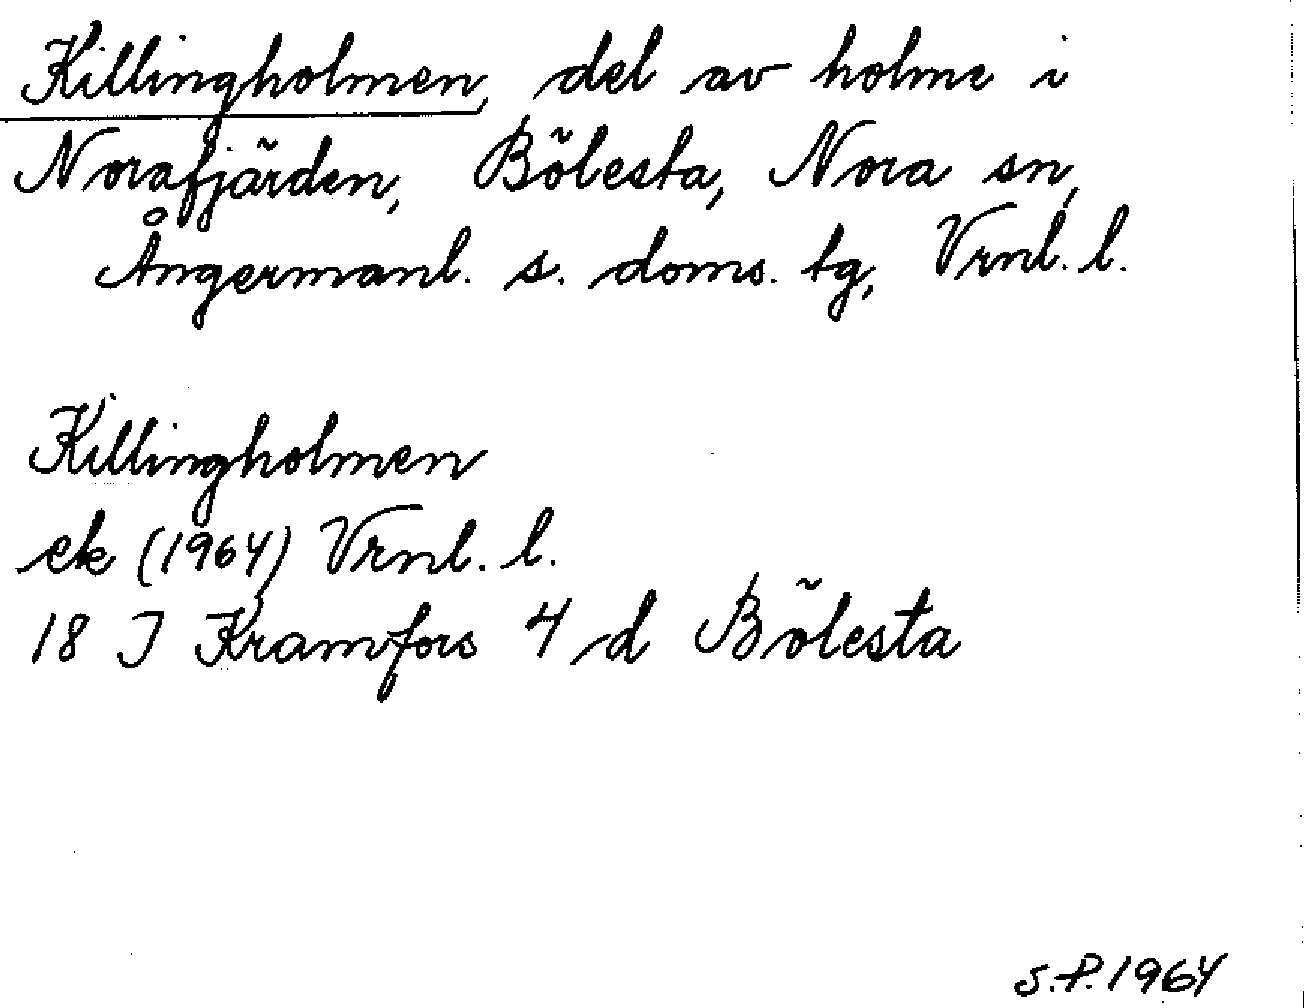 Killingholmen, del av holme i
Norafjärden, Bölesta, Nora sn,
Ångermanl. s. doms. tg, Vrnl. l.
Killingholmen
ek (1964) Vrnl. l.
18 J Kramfors 4 d Bölesta
S.P. 1964